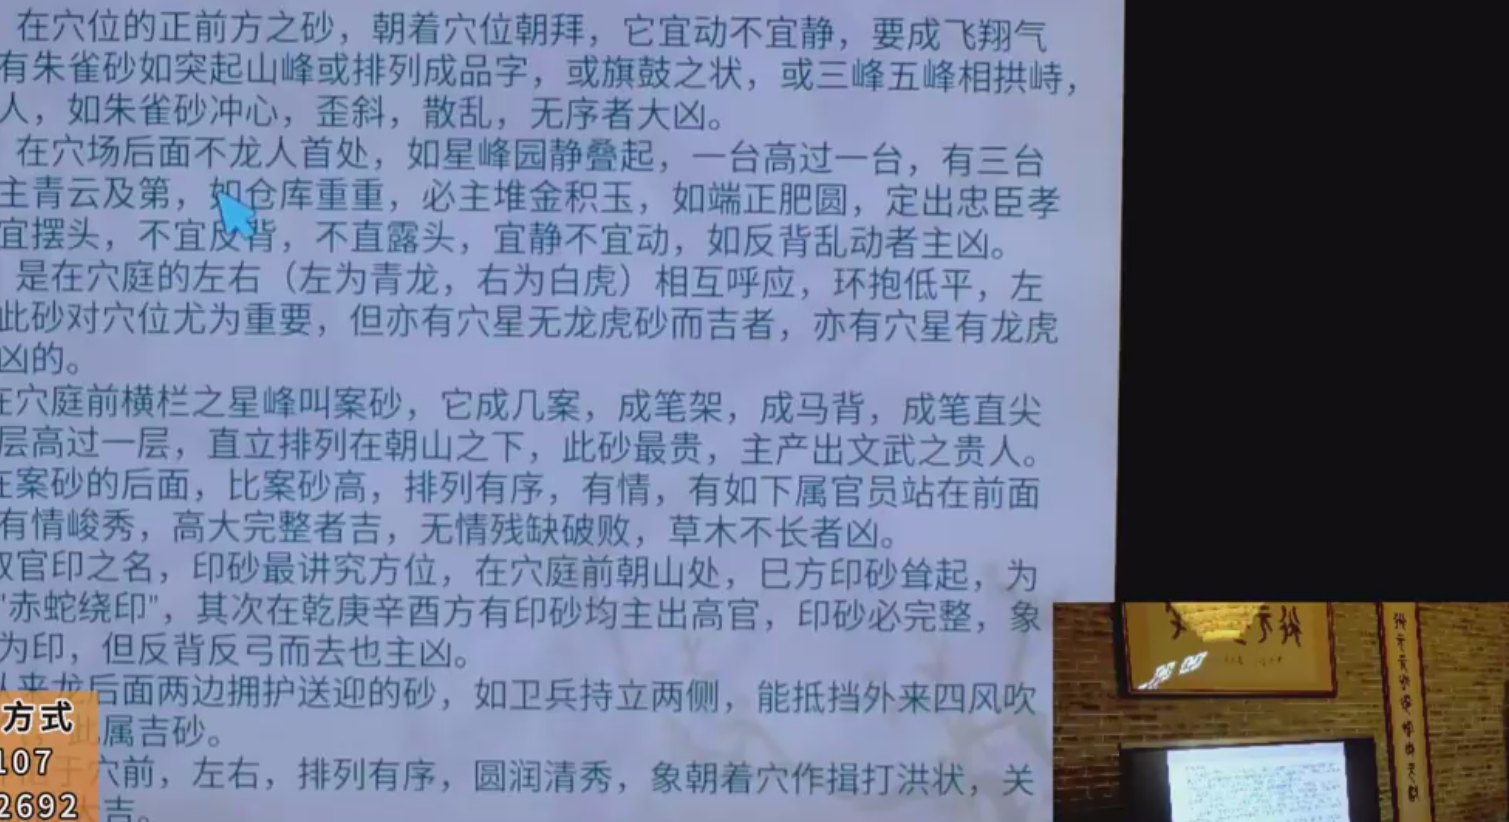 在穴位的正前方之砂，朝着穴位朝拜，它宜动不宜静，要成飞翔气
有朱雀砂如突起山峰或排列成品字，或旗鼓之状，或三峰五峰相拱峙，
人，如朱雀砂冲心，歪斜，散乱，无序者大凶。
在穴场后面不龙人首处，如星峰园静叠起，一台高过一台，有三台
主青云及第，如仓库重重，必主堆金积玉，如端正肥圆，定出忠臣孝
宜摆头，不宜反背，不直露头，宜静不宜动，如反背乱动者主凶。
是在穴庭的左右（左为青龙，右为白虎）相互呼应，环抱低平，左
此砂对穴位尤为重要，但亦有穴星无龙虎砂而吉者，亦有穴星有龙虎
凶的。
在穴庭前横栏之星峰叫案砂，它成几案，成笔架，成马背，成笔直尖
层高过一层，直立排列在朝山之下，此砂最贵，主产出文武之贵人。
在案砂的后面，比案砂高，排列有序，有情，有如下属官员站在前面
有情峻秀，高大完整者吉，无情残缺破败，草木不长者凶。
取官印之名，印砂最讲究方位，在穴庭前朝山处，巳方印砂耸起，为
"赤蛇绕印"，其次在乾庚辛酉方有印砂均主出高官，印砂必完整，象
为印，但反背反弓而去也主凶。
从来龙后面两边拥护送迎的砂，如卫兵持立两侧，能抵挡外来四风吹
此属吉砂。
于穴前，左右，排列有序，圆润清秀，象朝着穴作揖打洪状，关
大吉。
方式
107
2692